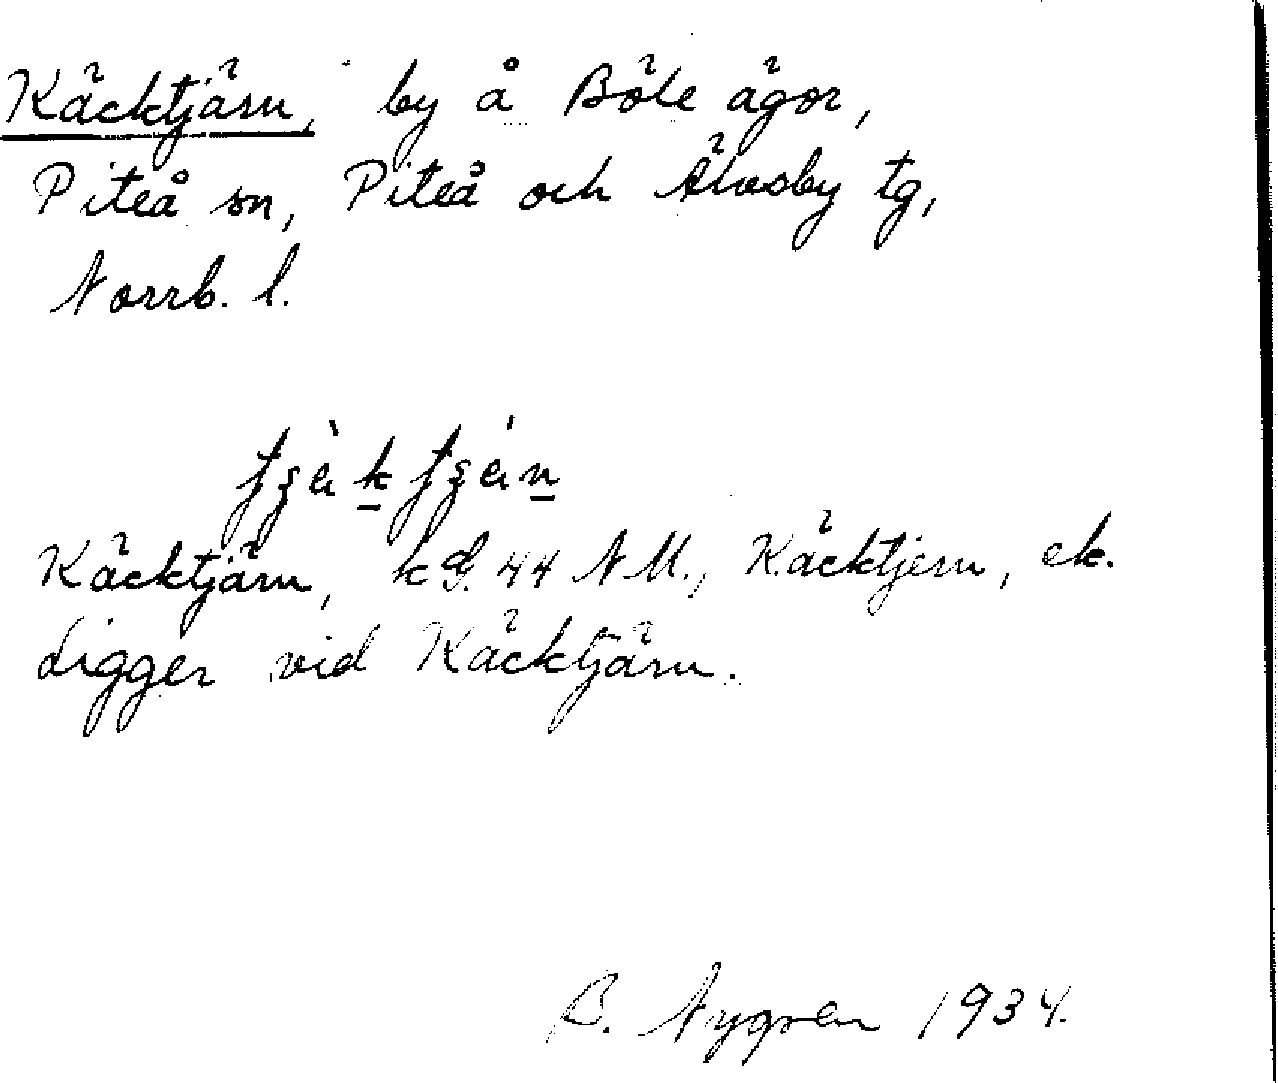 Käcktjärn, by å Böle ägor,
Piteå sn, Piteå och Älvsby tg,
Norrb. l.
Käcktjärn, kG. 44 NM., Käcktjern, ek.
Ligger vid Käcktjärn.
B. Nygren 1934.